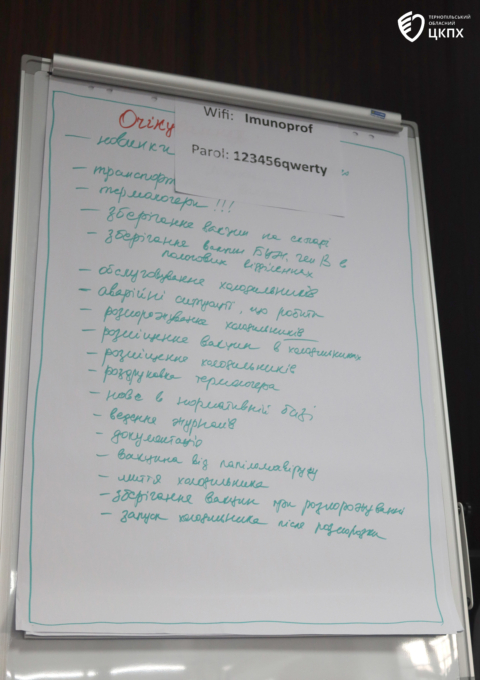 ТЕРНОПІЛЬСЬКИЙ
ОБЛАСНИЙ
ЦКПХ
Wifi: Imunoprof
Parol: 123456qwerty
Очіку
- новинки
- транспорт
- термологери !!!
- зберігання вакцин на складі
- зберігання вакцин БЦЖ, геп В в
пологових відділеннях
- обслуговування холодильників
- аварійні ситуації, що робити
- розморожування холодильників
- розміщення вакцин в холодильниках
- розміщення холодильників
- роздруковка термологера
- нове в нормативній базі
- ведення журналів
- документація
- вакцина від папіломавірусу
- миття холодильника
- зберігання вакцин при розморожуванні
- запуск холодильника після розморозки